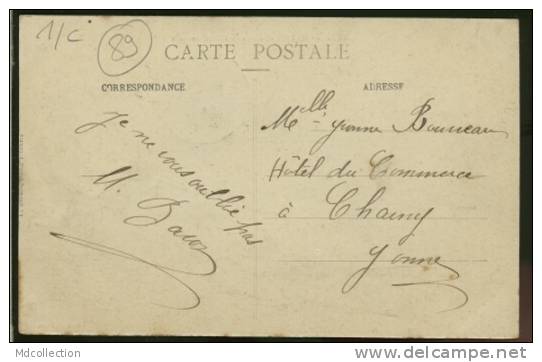 1/c
89
CARTE POSTALE
CORRESPONDANCE
ADRESSE
Je ne vous oublie pas
M.
Melle Yvonne
Hôtel du Commerce
à Charny
Yonne
Mdcollection
www.delcampe.net